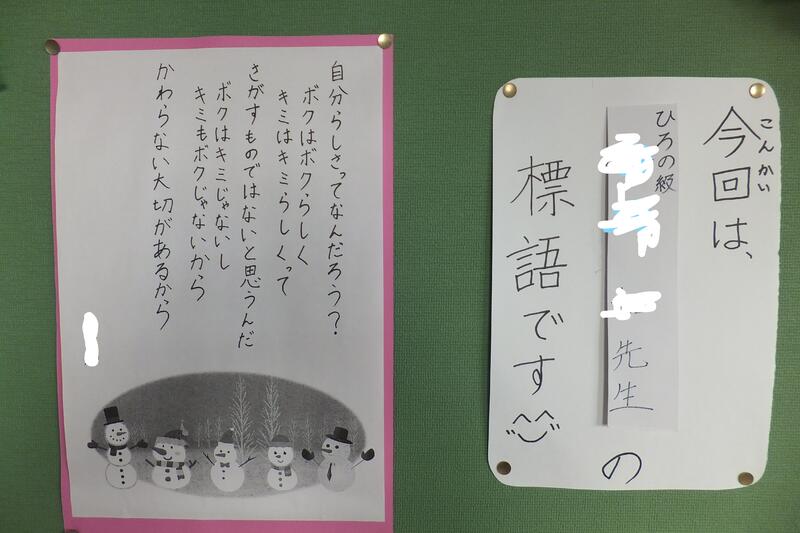 今回は、
こんかい
ひろの級
先生
の
標語です
自分らしさってなんだろう？
ボクはボクらしく
キミはキミらしくって
さがすものではないと思うんだ
ボクはキミじゃないし
キミもボクじゃないから
かわらない大切があるから